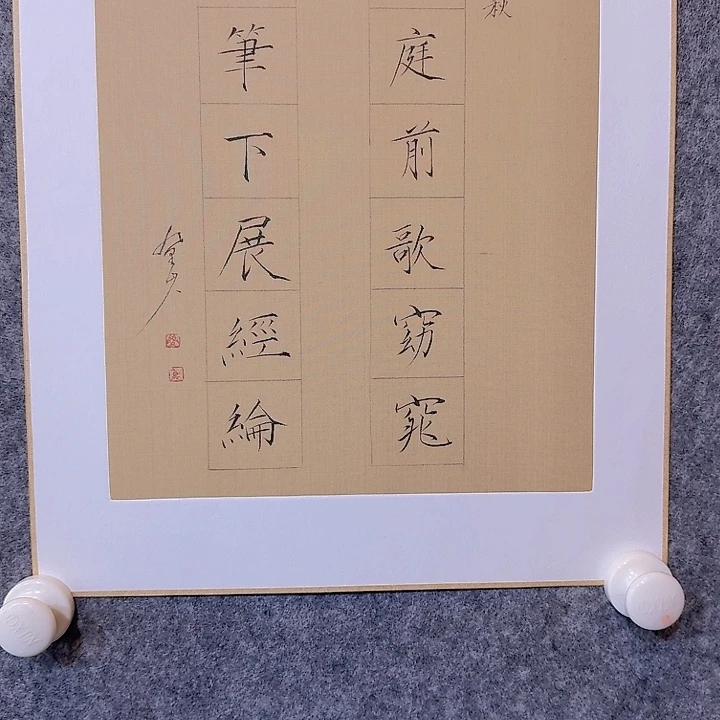 秋
庭前歌窈窕
筆下展經綸